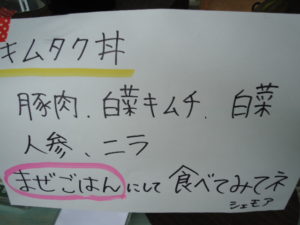 キムタク丼
豚肉、白菜キムチ、白菜
人参、ニラ
まぜごはんにして食べてみてネ
シェモア